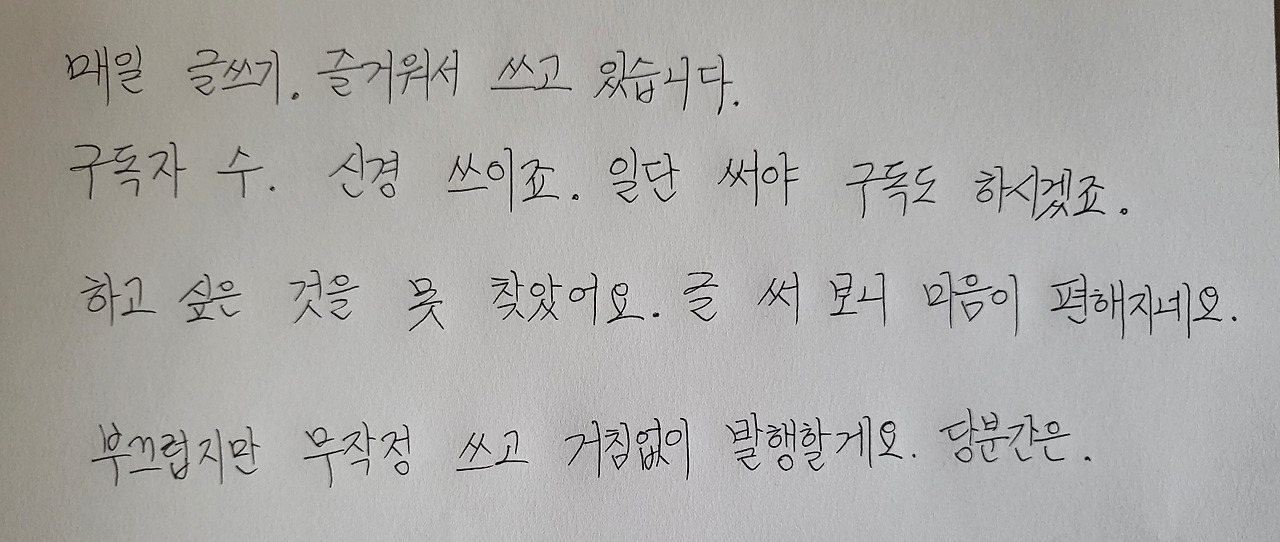 매일 글쓰기. 즐거워서 쓰고 있습니다.
구독자 수. 신경 쓰이죠. 일단 써야 구독도 하시겠죠.
하고 싶은 것을 못 찾았어요. 글 써 보니 마음이 편해지네요.
부끄럽지만 무작정 쓰고 거침없이 발행할게요. 당분간은.